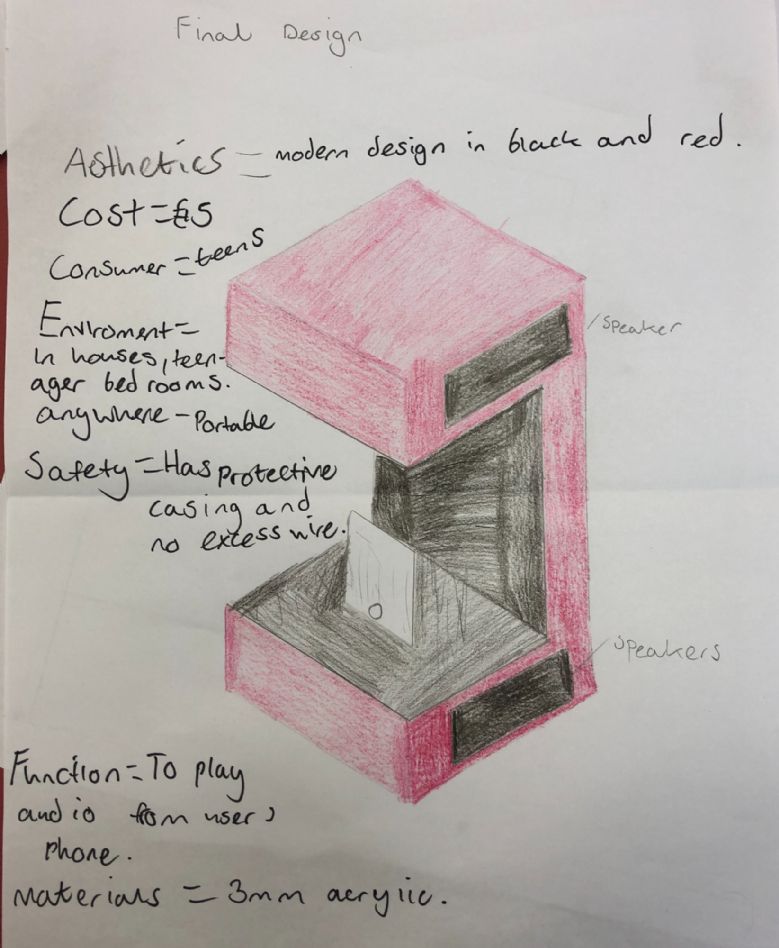 Final Design
Asthetics = modern design in black and red.
Cost = £5
Consumer = teens
Enviroment =
In houses, teen-
ager bedrooms.
anywhere - Portable
Speaker
Safety = Has protective
casing and
no excess wire.
Speakers
Function = To play
audio from users
Phone.
Materials = 3mm acrylic.